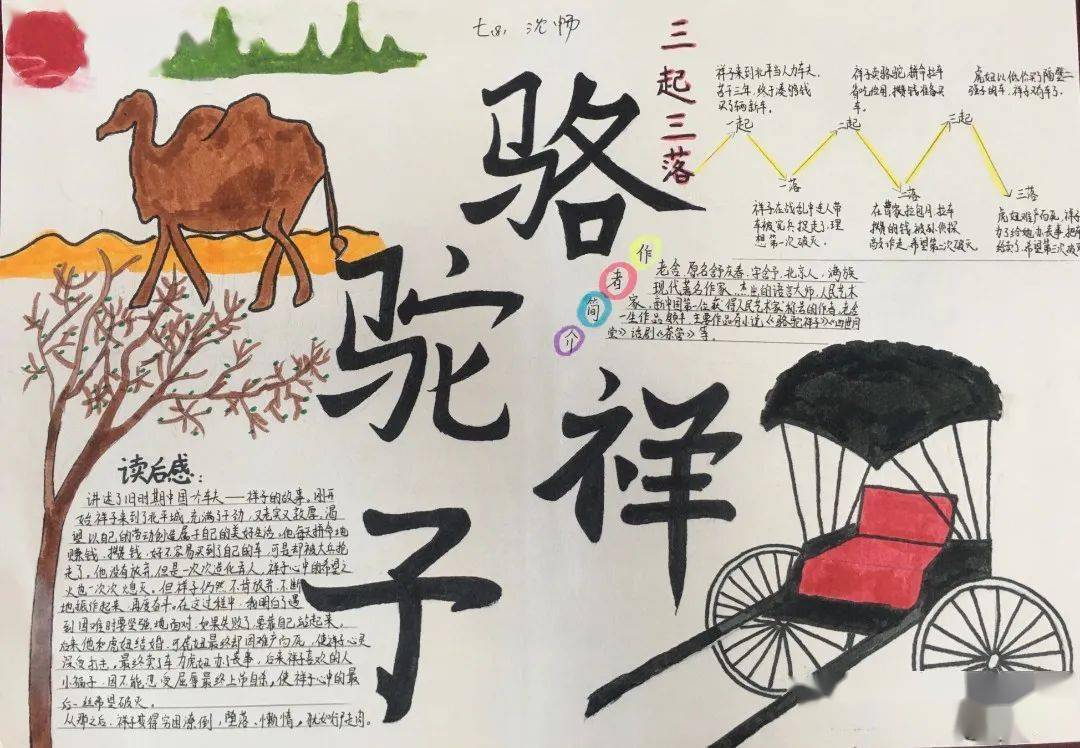 七(8) 沈畅
骆
驼
祥
子
三起三落
祥子来到北平当人力车夫,
苦干三年,终于凑够钱
买了辆新车。
一起
一落
祥子在战乱中连人带
车被宪兵捉走了.理
想第一次破灭。
祥子卖骆驼,拼命拉车
省吃俭用,攒钱准备买
车。
二起
二落
在曹家拉包月,拉车
攒的钱被孙侦探
敲诈走.希望第二次破灭。
虎妞以低价买了隔壁二
强子的车,祥子又有车了。
三起
三落
虎妞难产而死,祥子
为了给她办丧事,把车
给卖了,希望第三次破灭
作者简介
老舍 原名舒庆春,字舍予,北京人,满族
现代著名作家、杰出的语言大师、人民艺术
家,新中国第一位获得人民艺术家称号的作者,老舍
一生作品颇丰,主要作品有小说《骆驼祥子》《四世同
堂》话剧《茶馆》等。
读后感:
讲述了旧时期中国一个车夫——祥子的故事。刚开
始祥子来到了北平城,充满了干劲,又老实又敦厚,渴
望以自己的劳动创造属于自己的美好生活。他每天拼命地
赚钱、攒钱,好不容易买到了自己的车,可是却被大兵抢
走了。他没有放弃,但是一次次造化弄人,祥子心中的希望之
火也一次次熄灭。但祥子仍然不肯放弃,不断
地振作起来,再度奋斗。在这过程中,我明白了遇
到困难时要坚强地面对,如果失败了,要靠自己站起来。
后来他和虎妞结婚,可虎妞最终却因难产而死,使祥子心灵
深受打击。最终卖了车为虎妞办了丧事,后来祥子喜欢的人
小福子,因不能忍受屈辱最终上吊自杀。使祥子心中的最
后一丝希望破灭。
从那之后,祥子变得穷困潦倒,堕落、懒惰。犹如行尸走肉。